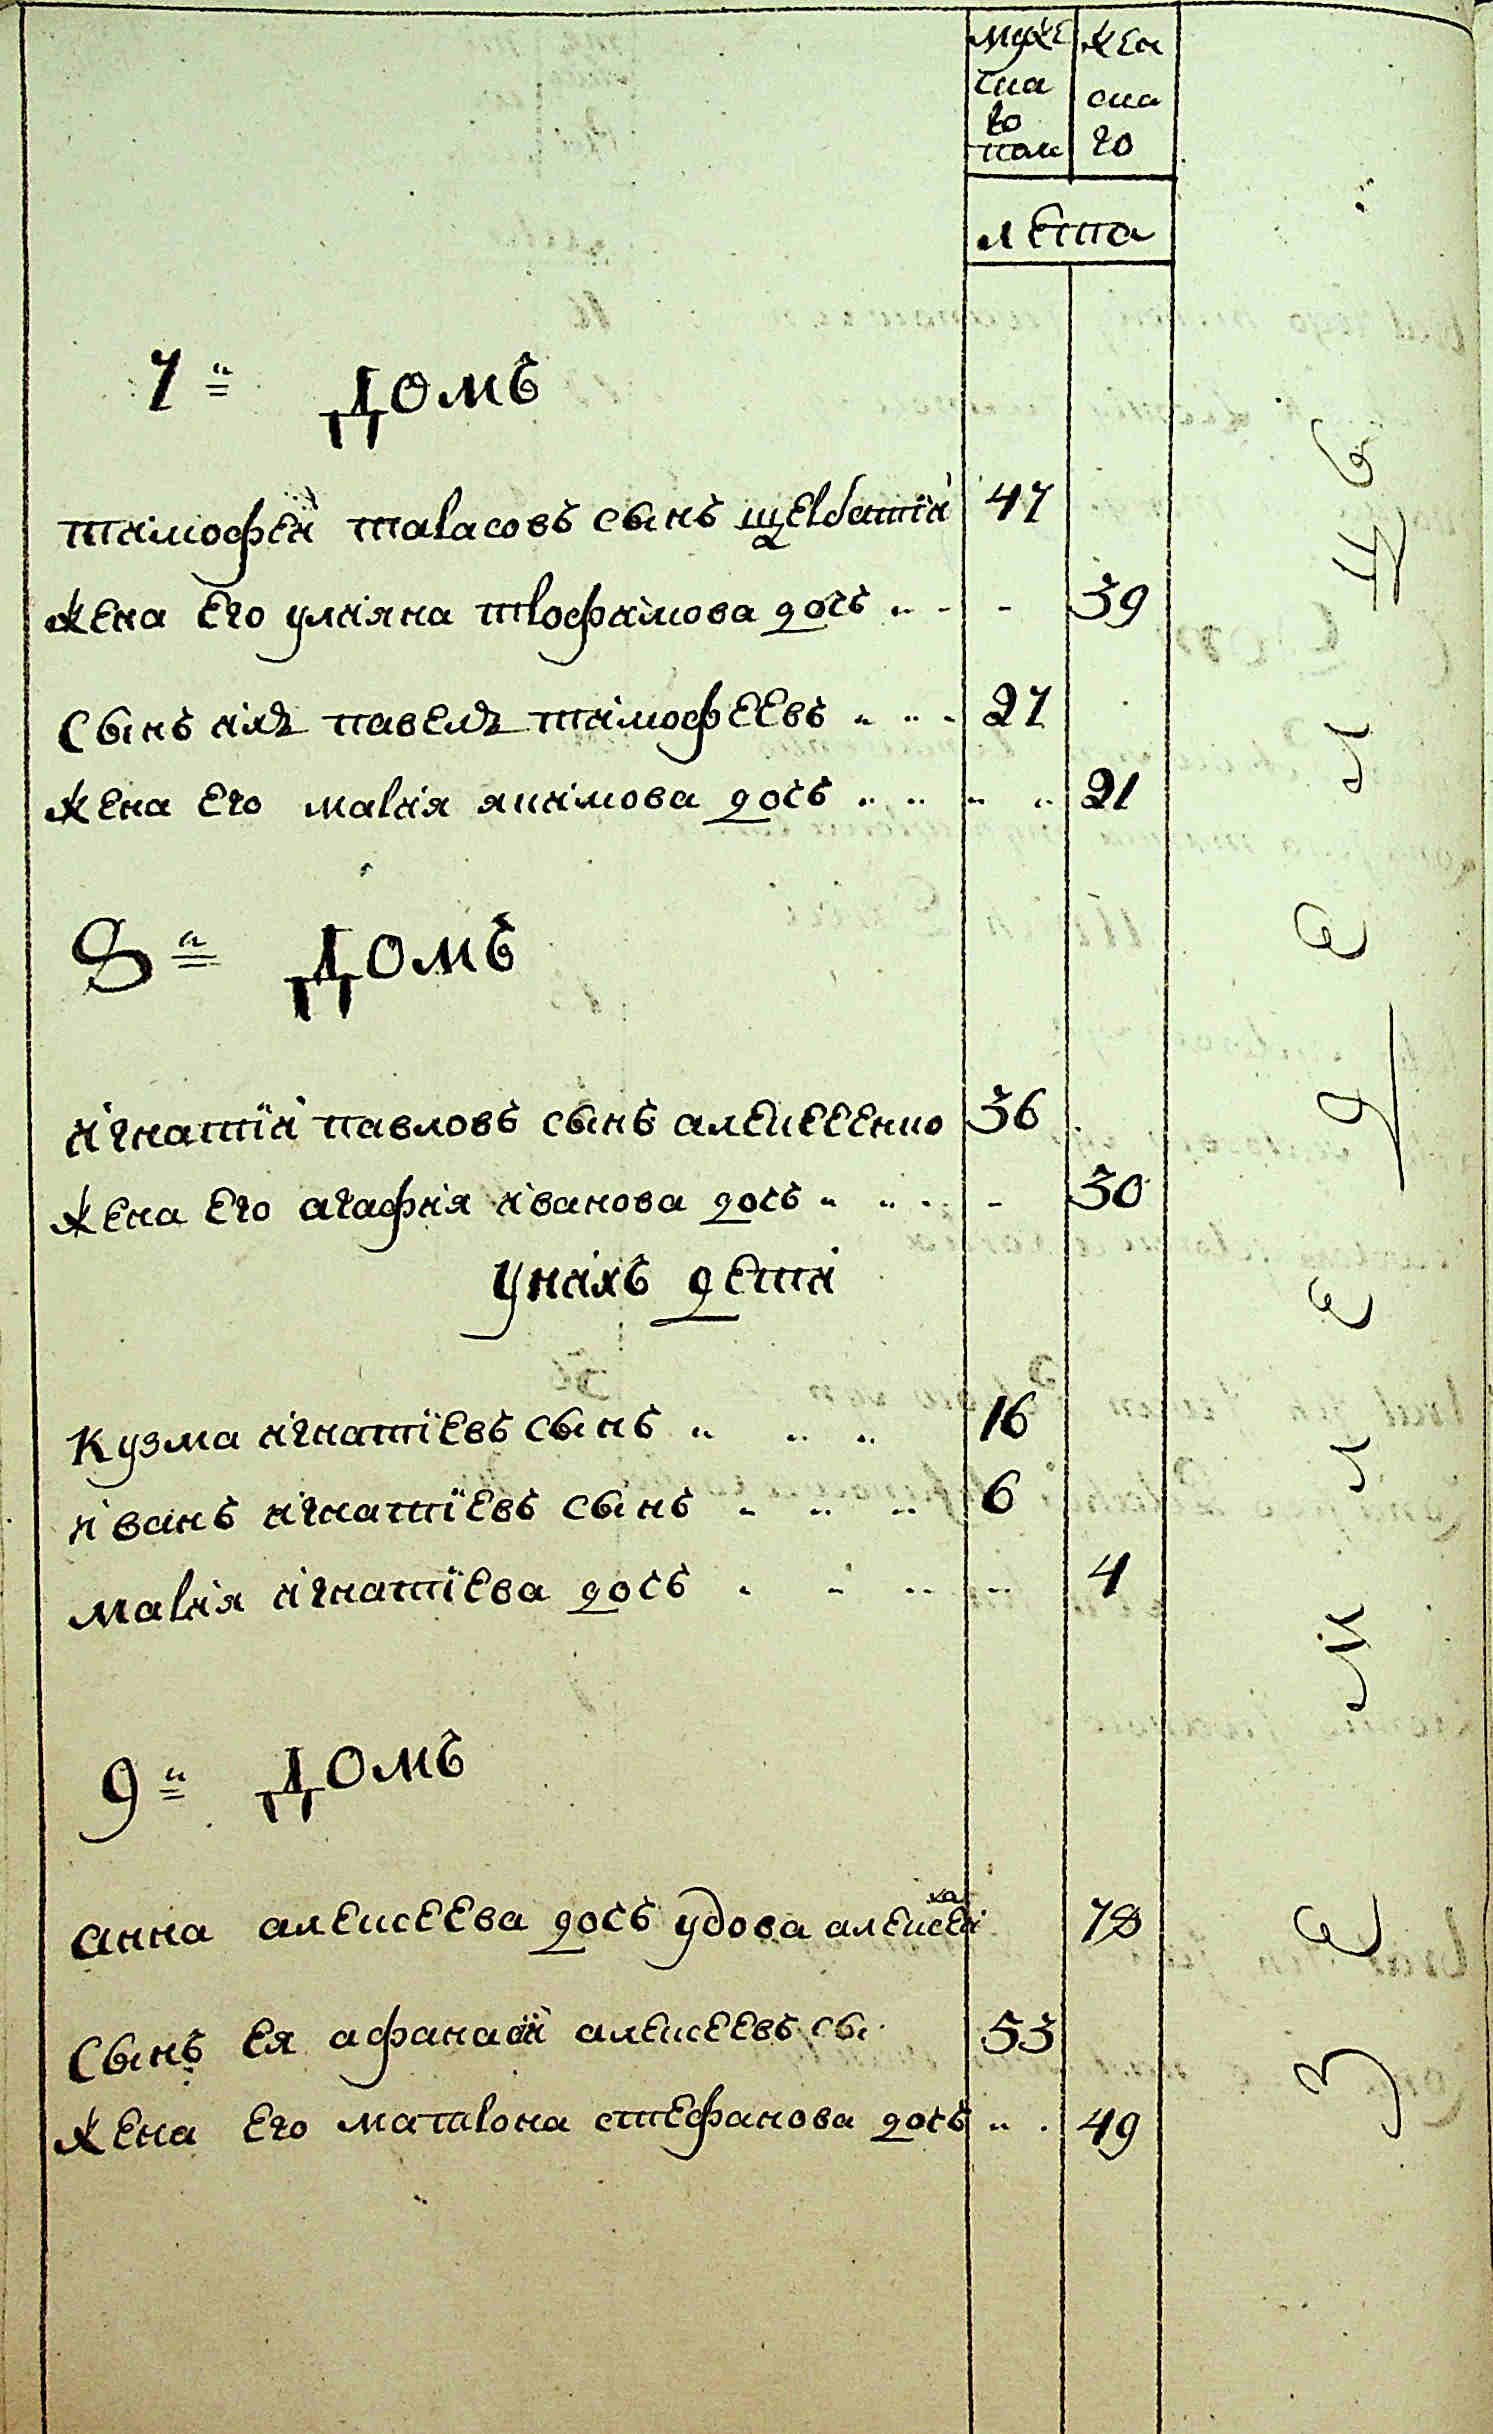 муже жен
ска ска
го го
полу
лета
7 й домъ
тимофей тарасовъ сынъ щербатий 47
жена его улияна трофимова дочь 39
сынъ ихъ павелъ тимофеевъ 27
жена его мария якимова дочь 21
8 й домъ
игнатїй павловъ сынъ алексеенко 36
жена его агафия иванова дочь 30
у нихъ дети
кузма игнатїевъ сынъ 16
иванъ игнатїевъ сынъ 6
мария игнатїева дочь 4
9 й домъ
анна алексеева дочь удова алексеиха
сынъ ея афанасїй алексеевъ сы 53
жена его матрона стефанова дочь 49
землед